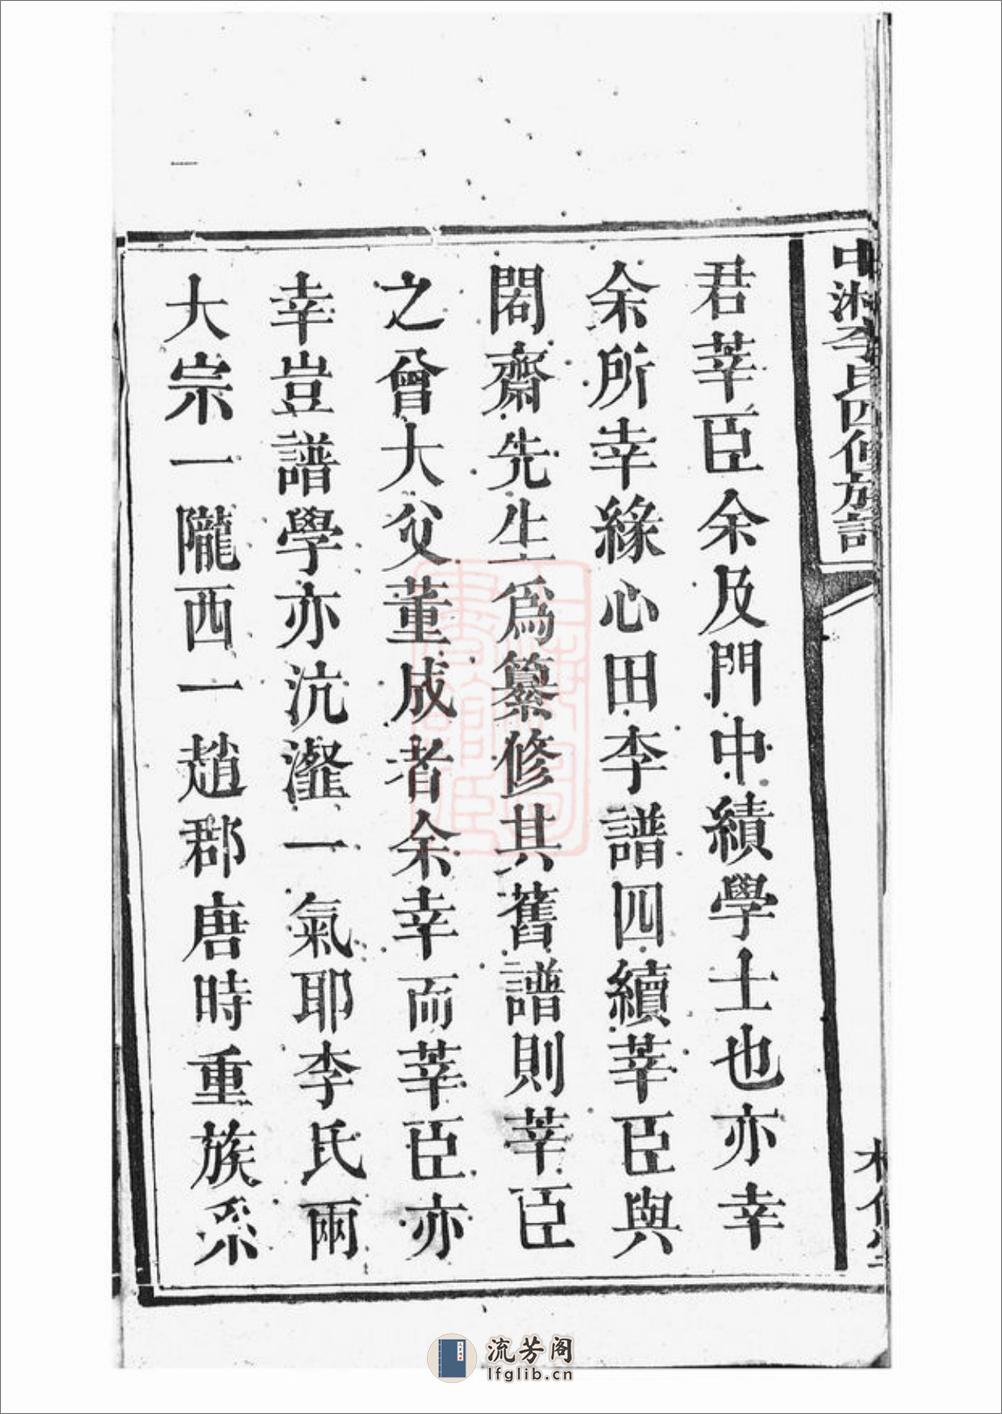 中湘李氏四修族譜
君莘臣余及門中績學士也亦幸
余所幸緣心田李譜四續莘臣與
闇齋先生爲纂修其舊譜則莘臣
之曾大父董成者余幸而莘臣亦
幸豈譜學亦沆瀣一氣耶李氏兩
大宗一隴西一趙郡唐時重族系
流芳阁
lfglib.cn